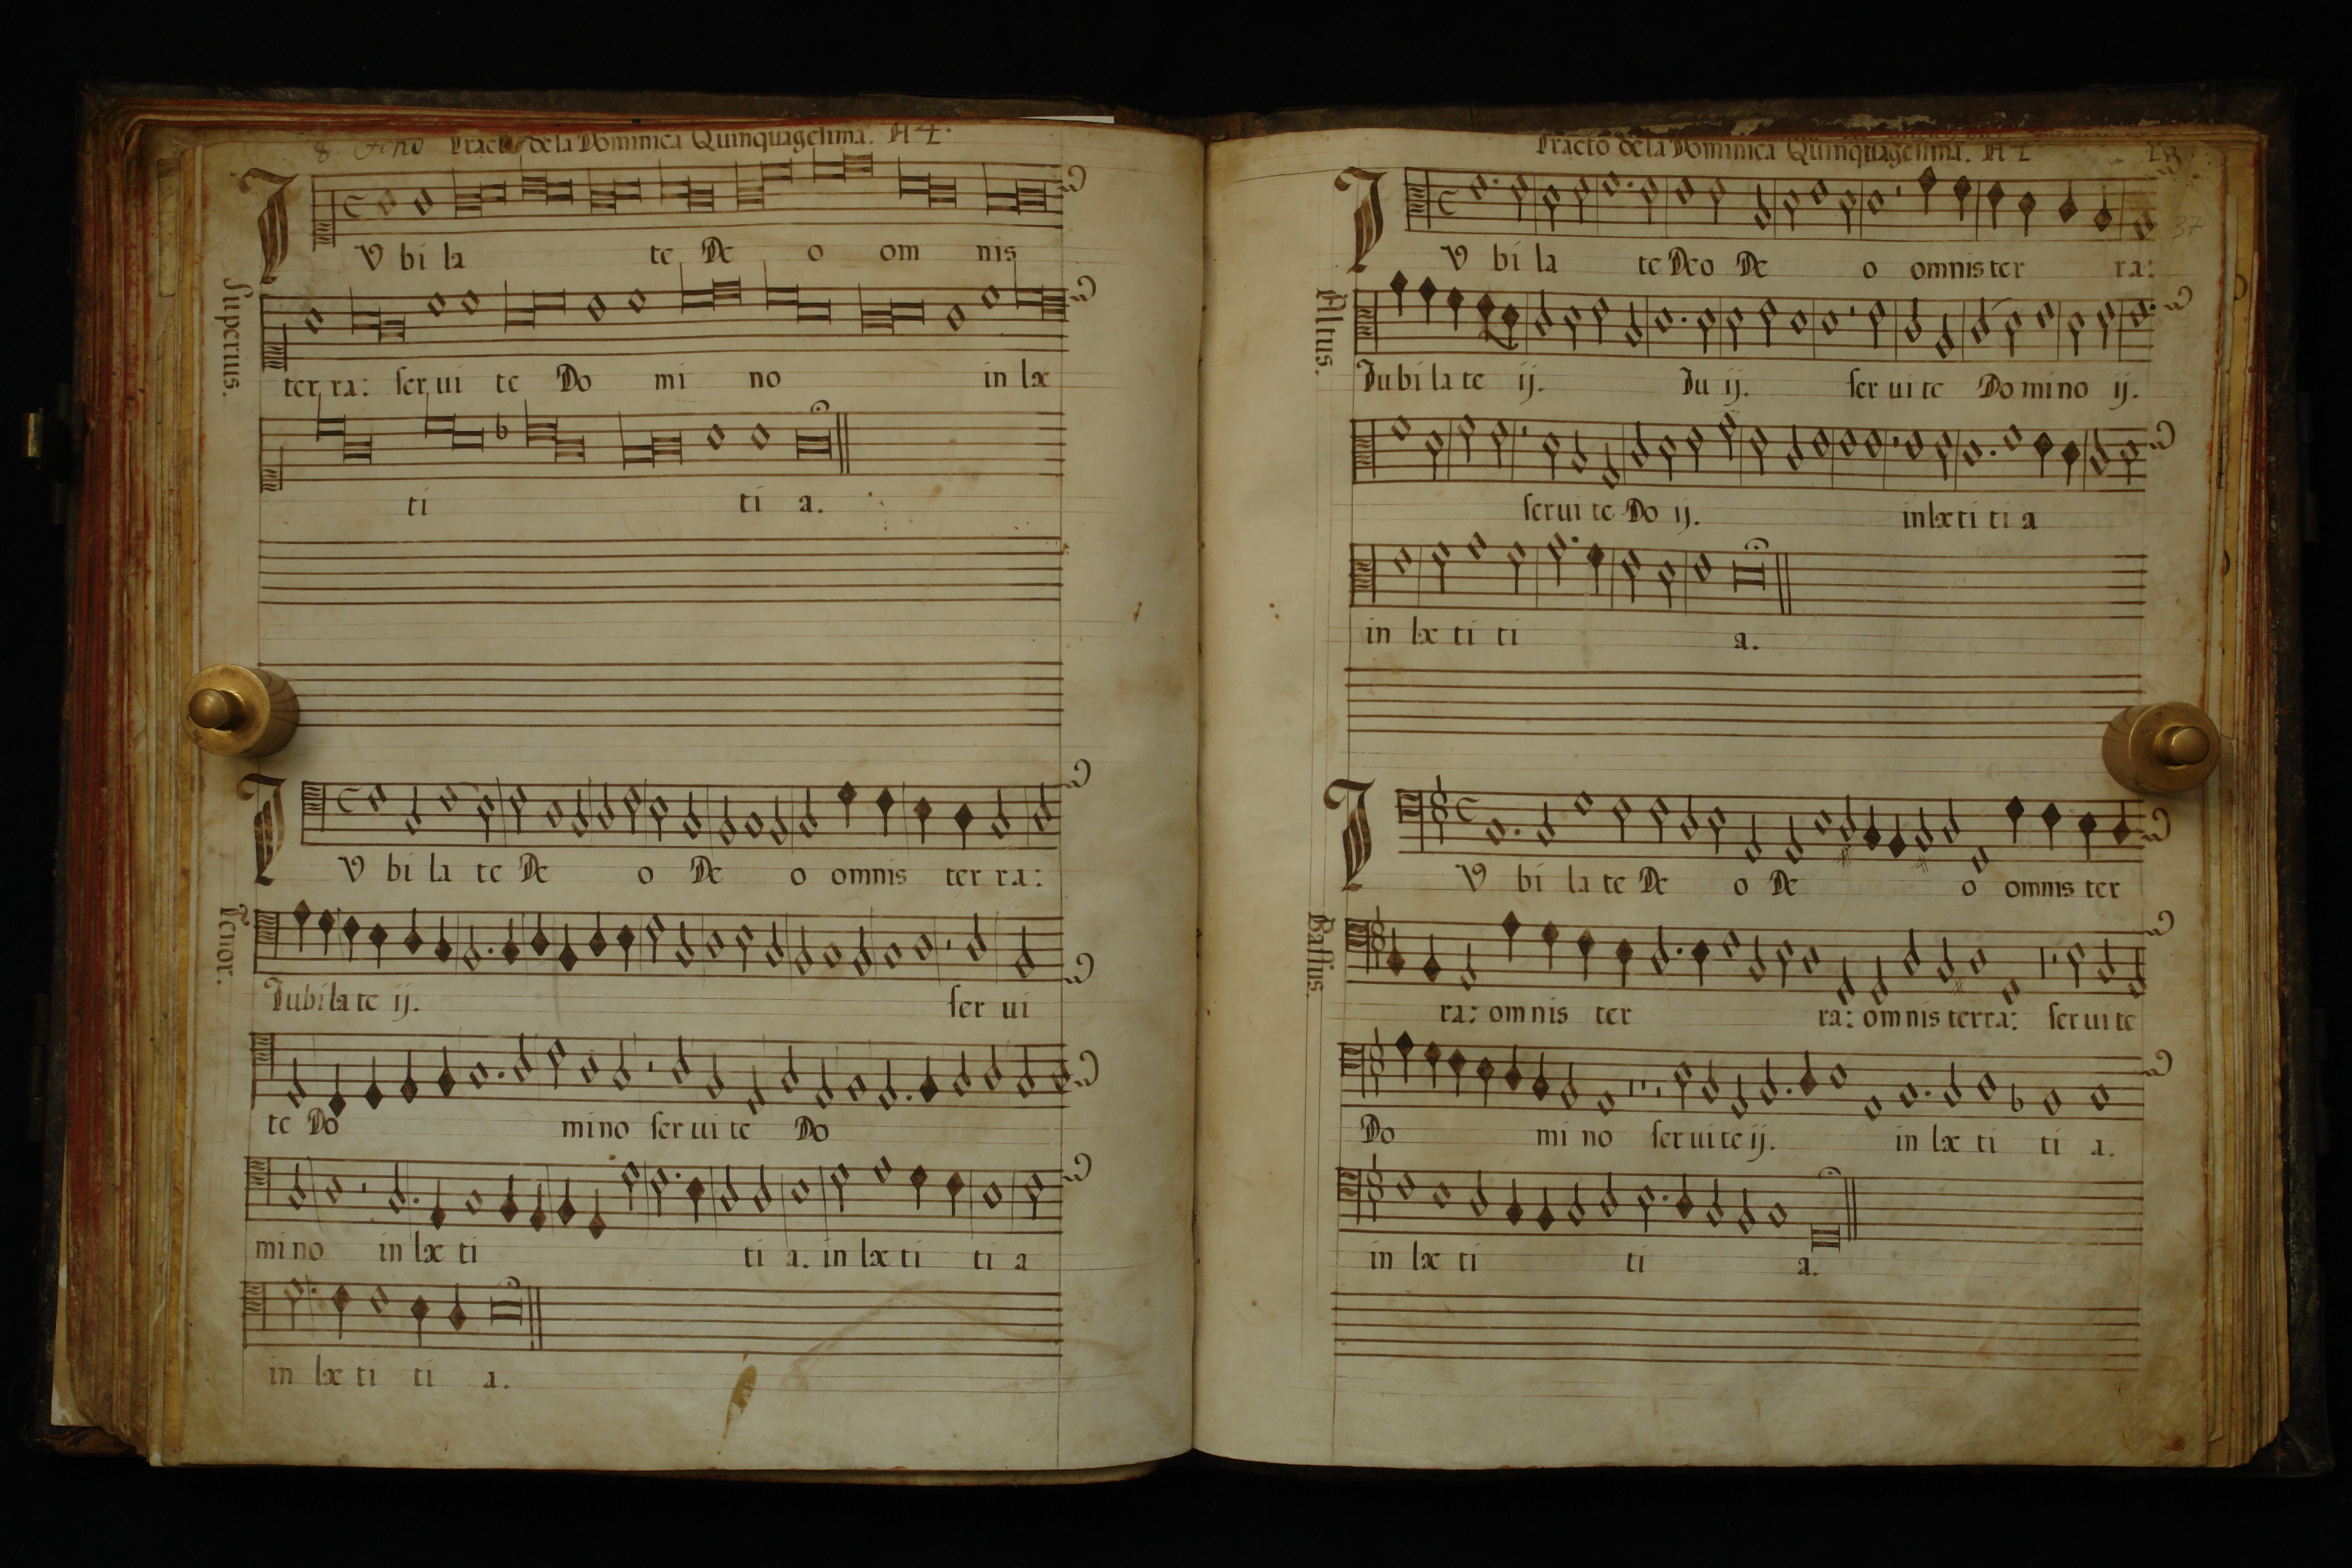 8. tono Tracto de la Dominica Quinquagesima. A 4.
IV bi la te De o om nis
Superius.
ter ra: ser ui te Do mi no in læ
ti ti a.
IV bi la te De o De o omnis ter ra:
Tenor.
Iubilate ij. ser ui
te Do mino ser ui te Do
mino in læ ti ti a. in læ ti ti a
in læ ti ti a.
Tracto de la Dominica Quinquagesima. A
37
IV bi la te Deo De o omnis ter ra:
Altus.
Iubilate ij. Iu ij. ser uite Domino ij.
seruite Do ij. inlætitia
in læ ti ti a.
IV bi la te De o De o omnis ter
Bassus.
ra: omnis ter ra: omnis terra: seruite
Do mi no seruite ij. in læ ti ti a.
in læ ti ti a.